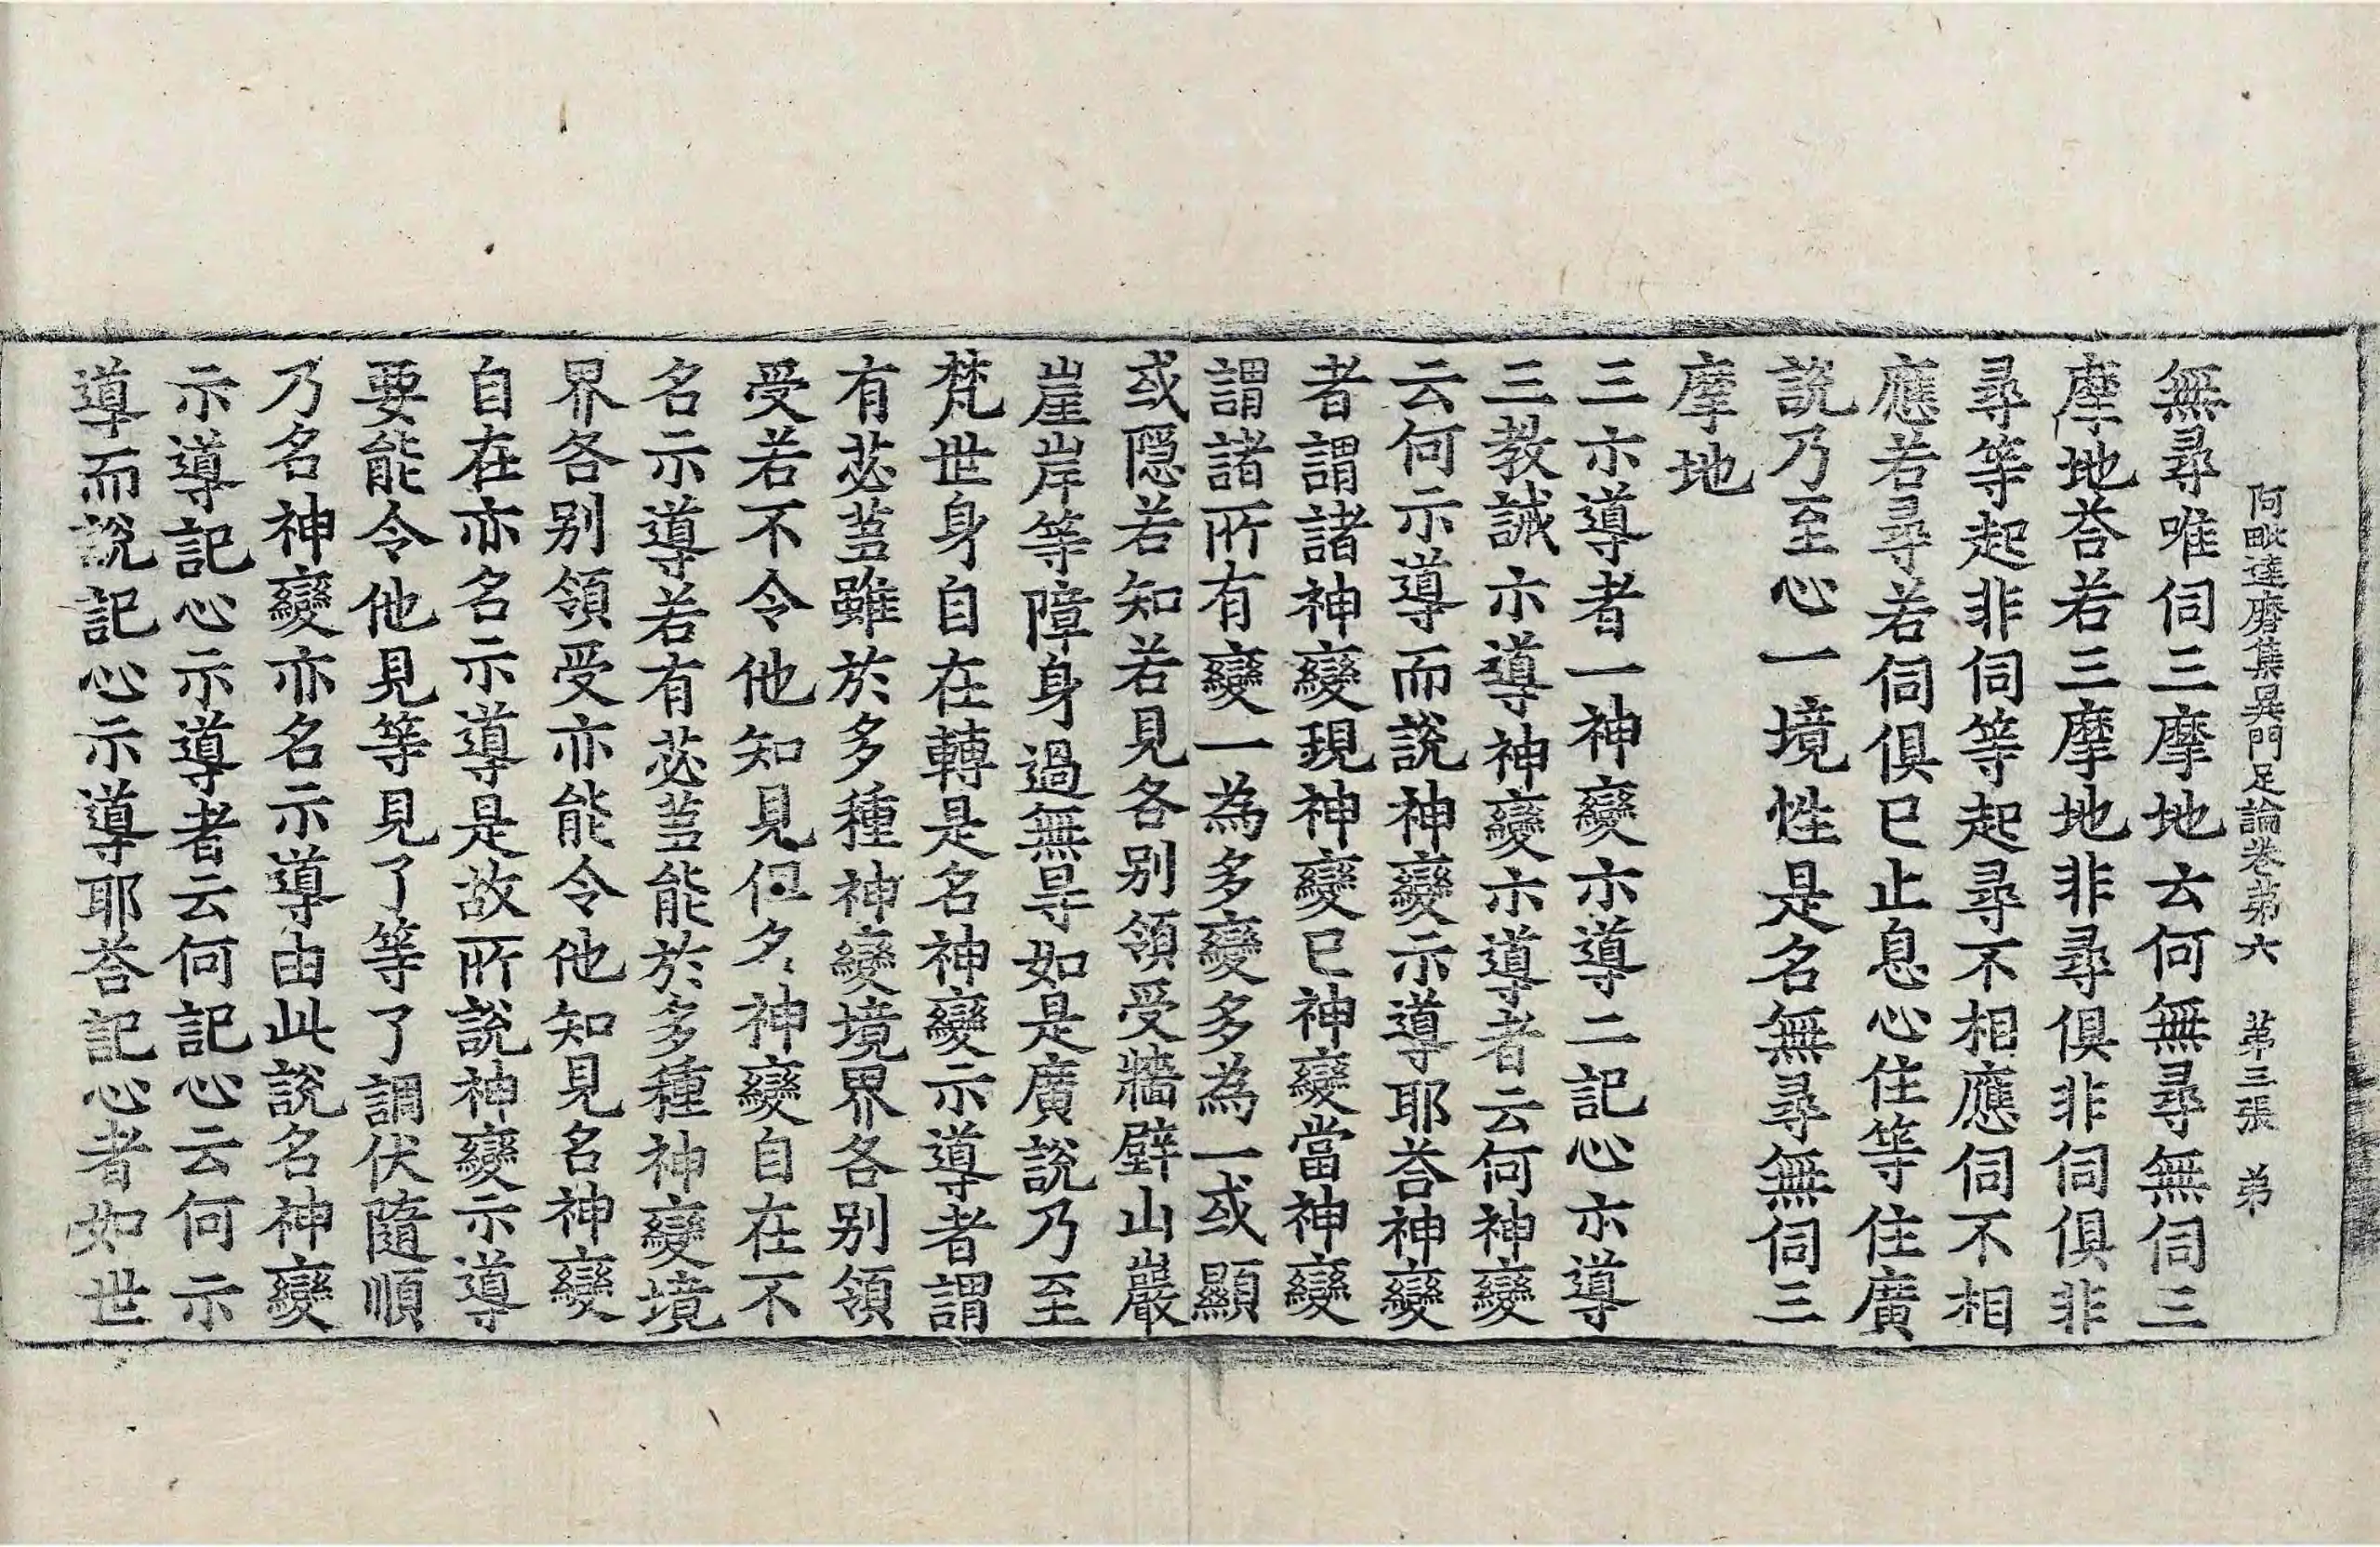 阿毗達磨集異門足論卷第六　第三張　弟
無尋唯伺三摩地云何無尋無伺三
摩地荅若三摩地非尋俱非伺俱非
尋等起非伺等起尋不相應伺不相
應若尋若伺俱已止息心住等住廣
說乃至心一境性是名無尋無伺三
摩地
三示導者一神變示導二記心示導
三教誡示導神變示導者云何神變
云何示導而說神變示導耶荅神變
者謂諸神變現神變已神變當神變
謂諸所有變一為多變多為一或顯
或隱若知若見各別領受牆壁山巖
崖岸等障身過無㝵如是廣說乃至
梵世身自在轉是名神變示導者謂
有苾蒭雖於多種神變境界各別領
受若不令他知見但名神變自在不
名示導若有苾蒭能於多種神變境
界各別領受亦能令他知見名神變
自在亦名示導是故所說神變示導
要能令他見等見了等了調伏隨順
乃名神變亦名示導由此說名神變
示導記心示導者云何記心云何示
導而說記心示導耶荅記心者如世